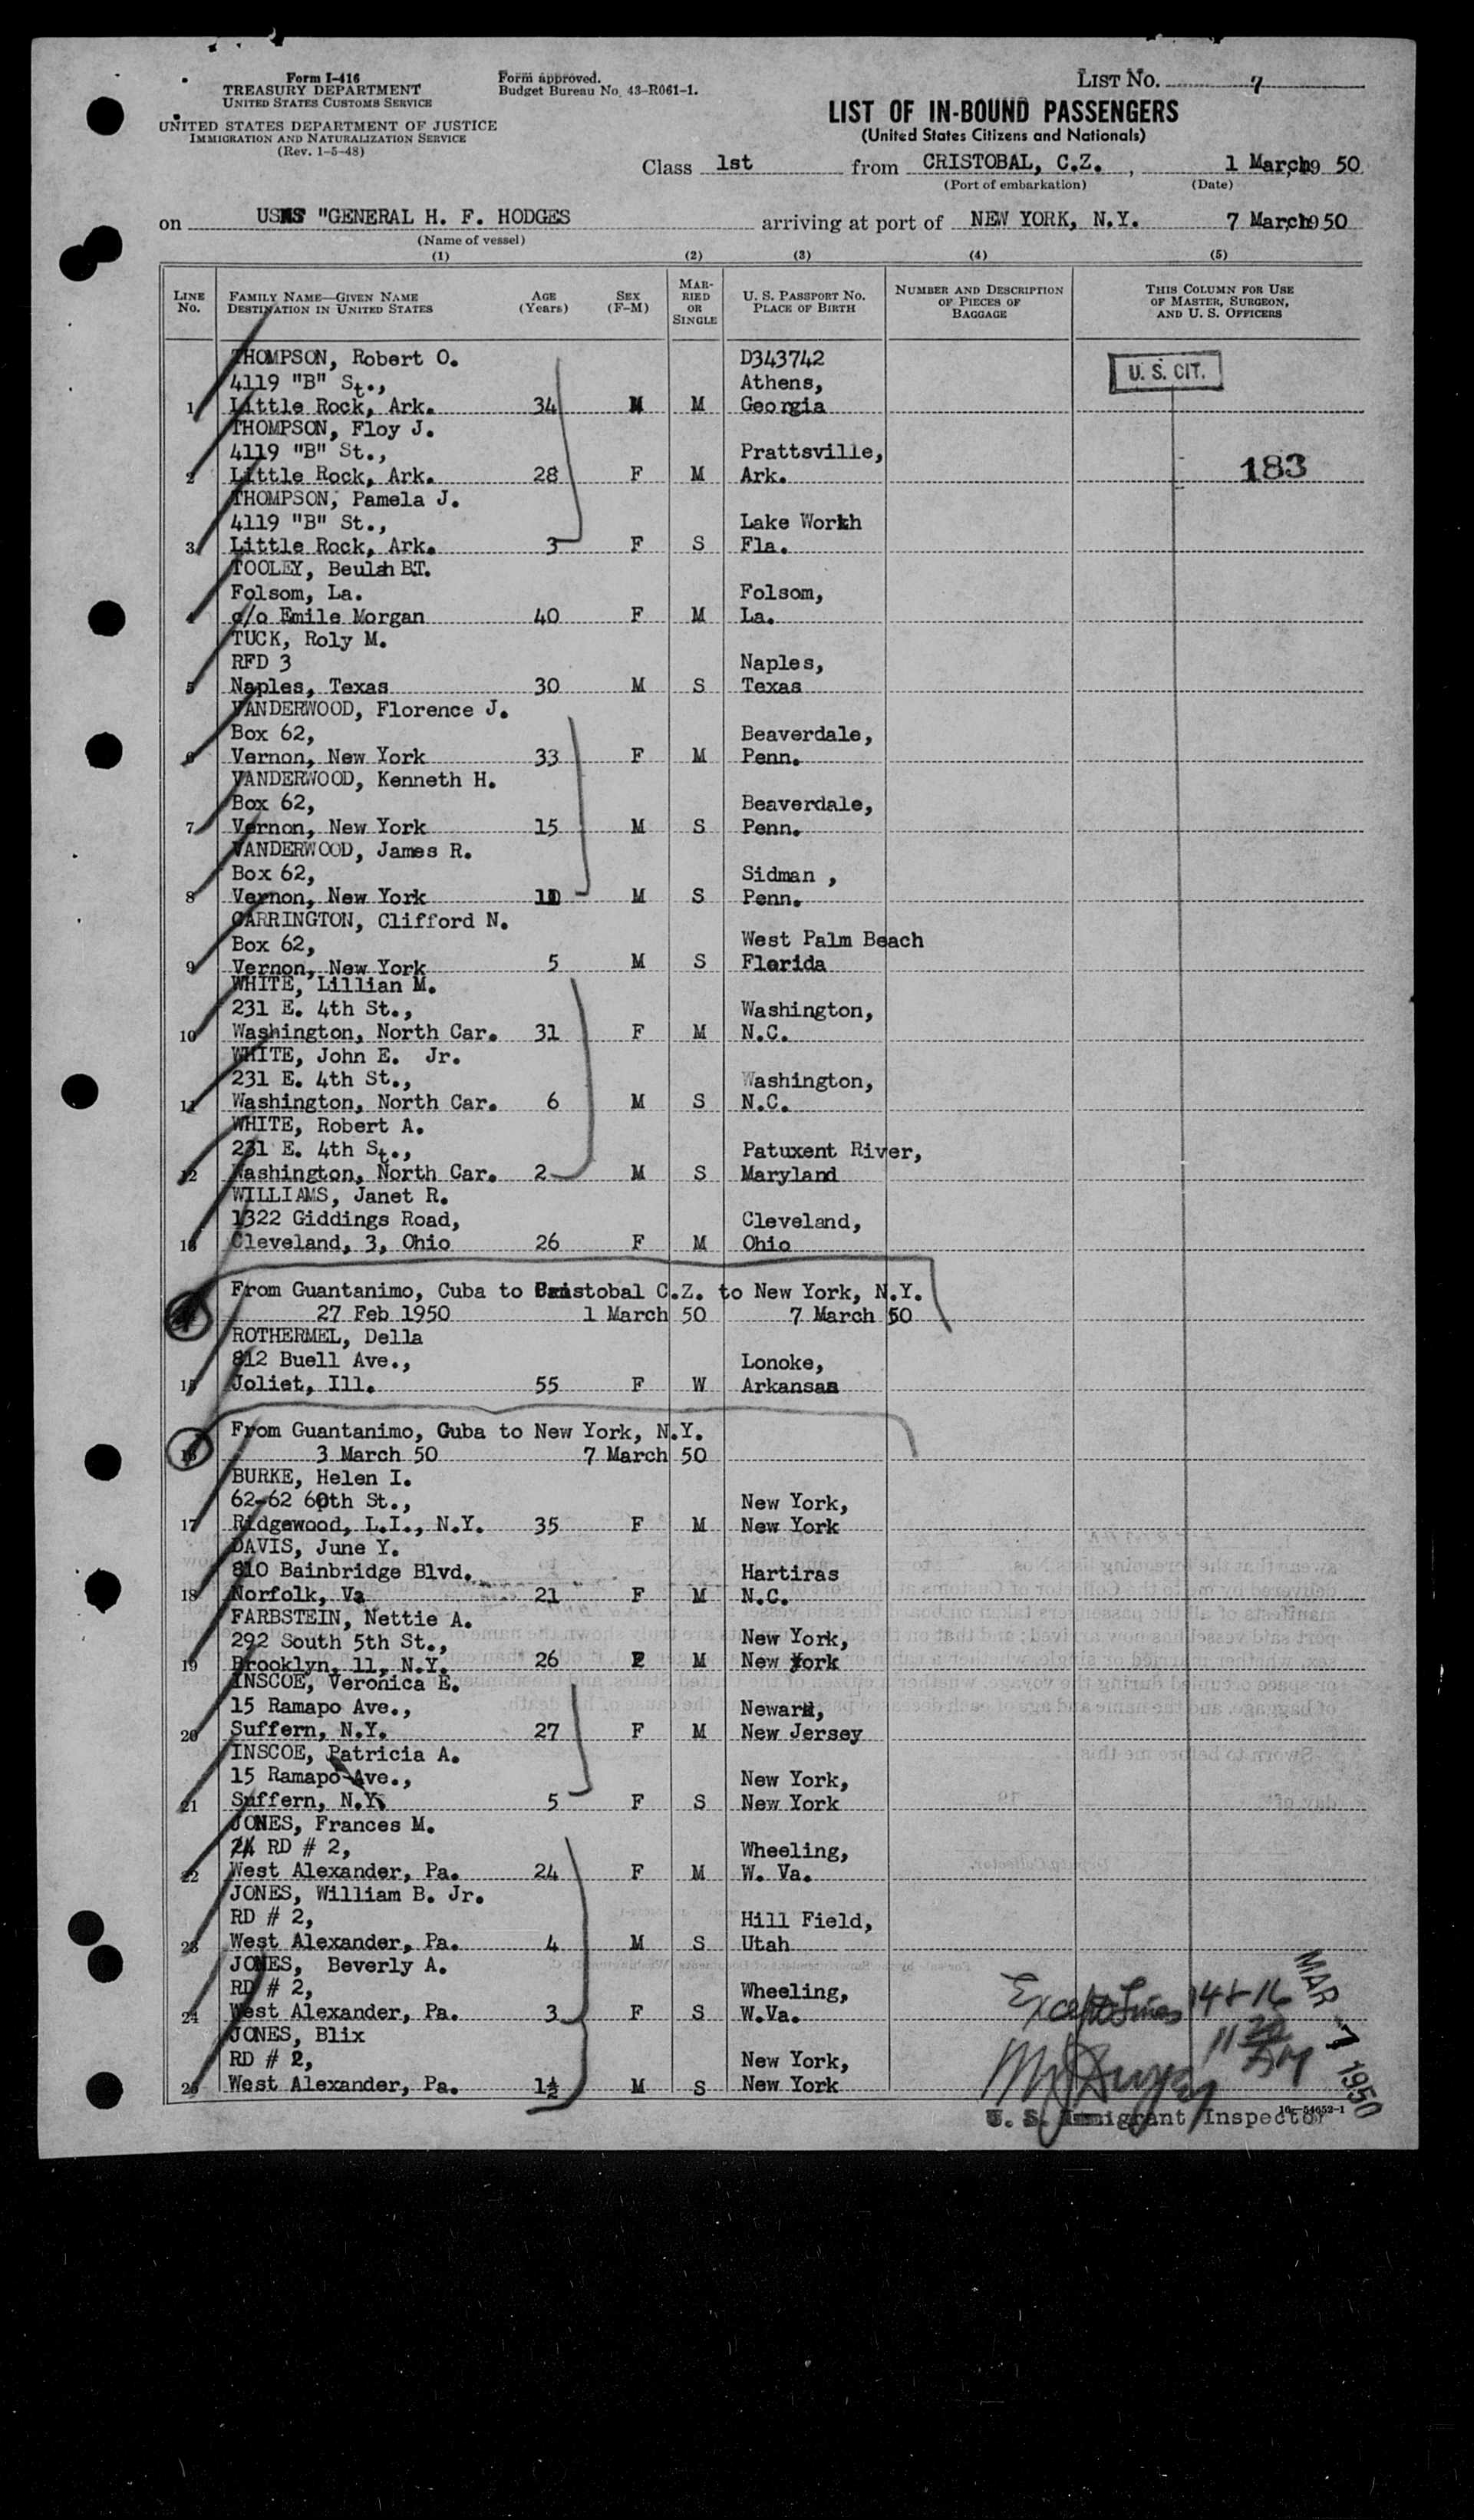 Form I-416
TREASURY DEPARTMENT
UNITED STATES CUSTOMS SERVICE
UNITED STATES DEPARTMENT OF JUSTICE
IMMIGRATION AND NATURALIZATION SERVICE
(Rev. 1-5-48)
Form approved.
Budget Bureau No. 43-R061-1.
LIST NO. 7
LIST OF IN-BOUND PASSENGERS
(United States Citizens and Nationals)
Class 1st from CRISTOBAL, C.Z. , 1 March, 19 50
(Port of embarkation) (Date)
on USNS "GENERAL H. F. HODGES arriving at port of NEW YORK, N.Y. 7 March, 1950
(Name of vessel)
(1) (2) (3) (4) (5)
LINE NO. FAMILY NAME—GIVEN NAME DESTINATION IN UNITED STATES AGE (Years) SEX (F-M) MARRIED OR SINGLE U. S. PASSPORT NO. PLACE OF BIRTH NUMBER AND DESCRIPTION OF PIECES OF BAGGAGE THIS COLUMN FOR USE OF MASTER, SURGEON, AND U. S. OFFICERS
THOMPSON, Robert O. D343742
4119 "B" St., Athens, U. S. CIT.
1 Little Rock, Ark. 34 M M Georgia
THOMPSON, Floy J.
4119 "B" St., Prattsville,
2 Little Rock, Ark. 28 F M Ark. 183
THOMPSON, Pamela J.
4119 "B" St., Lake Worth
3 Little Rock, Ark. 3 F S Fla.
TOOLEY, Beulah B.T.
Folsom, La. Folsom,
4 c/o Emile Morgan 40 F M La.
TUCK, Roly M.
RFD 3 Naples,
5 Naples, Texas 30 M S Texas
VANDERWOOD, Florence J.
Box 62, Beaverdale,
6 Vernon, New York 33 F M Penn.
VANDERWOOD, Kenneth H.
Box 62, Beaverdale,
7 Vernon, New York 15 M S Penn.
VANDERWOOD, James R.
Box 62, Sidman ,
8 Vernon, New York M S Penn.
CARRINGTON, Clifford N.
Box 62, West Palm Beach
9 Vernon, New York 5 M S Florida
WHITE, Lillian M.
231 E. 4th St., Washington,
10 Washington, North Car. 31 F M N.C.
WHITE, John E. Jr.
231 E. 4th St., Washington,
11 Washington, North Car. 6 M S N.C.
WHITE, Robert A.
231 E. 4th St., Patuxent River,
12 Washington, North Car. 2 M S Maryland
WILLIAMS, Janet R.
1322 Giddings Road, Cleveland,
13 Cleveland, 3, Ohio 26 F M Ohio
From Guantanimo, Cuba to Cristobal C.Z. to New York, N.Y.
27 Feb 1950 1 March 50 7 March 50
ROTHERMEL, Della
812 Buell Ave., Lonoke,
15 Joliet, Ill. 55 F W Arkansas
From Guantanimo, Cuba to New York, N.Y.
16 3 March 50 7 March 50
BURKE, Helen I.
62-62 60th St., New York,
17 Ridgewood, L.I., N.Y. 35 F M New York
DAVIS, June Y.
810 Bainbridge Blvd. Hartiras
18 Norfolk, Va 21 F M N.C.
FARBSTEIN, Nettie A.
292 South 5th St., New York,
19 Brooklyn, 11, N.Y. 26 F M New York
INSCOE, Veronica E.
15 Ramapo Ave., Newark,
20 Suffern, N.Y. 27 F M New Jersey
INSCOE, Patricia A.
15 Ramapo Ave., New York,
21 Suffern, N.Y. 5 F S New York
JONES, Frances M.
RD # 2, Wheeling,
22 West Alexander, Pa. 24 F M W. Va.
JONES, William B. Jr.
RD # 2, Hill Field,
23 West Alexander, Pa. 4 M S Utah
JONES, Beverly A.
RD # 2, Wheeling,
24 West Alexander, Pa. 3 F S W.Va.
JONES, Blix
RD # 2, New York,
25 West Alexander, Pa. 1½ M S New York
Except Lines 14 + 16
MAR -7 1950
U. S. Immigrant Inspector
16-54652-1